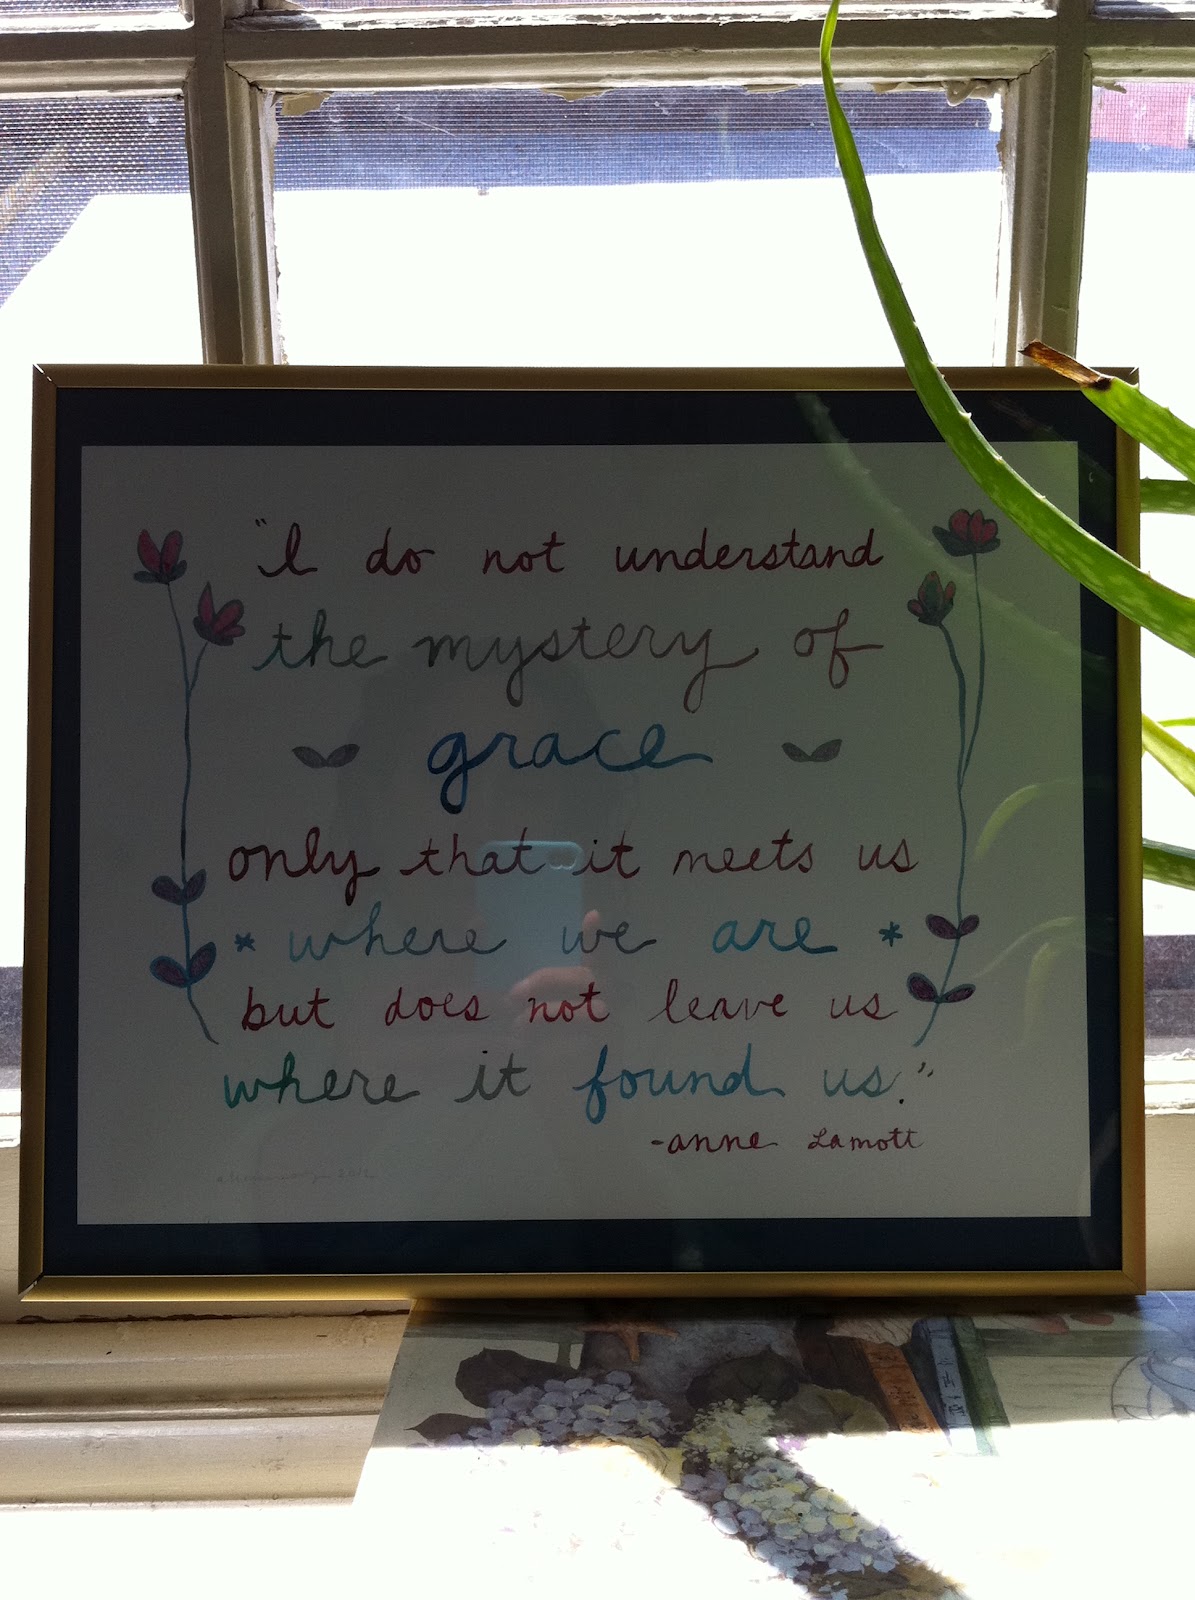 "I do not understand
the mystery of
grace
only that it meets us
* where we are *
but does not leave us
where it found us."
-anne Lamott
2012